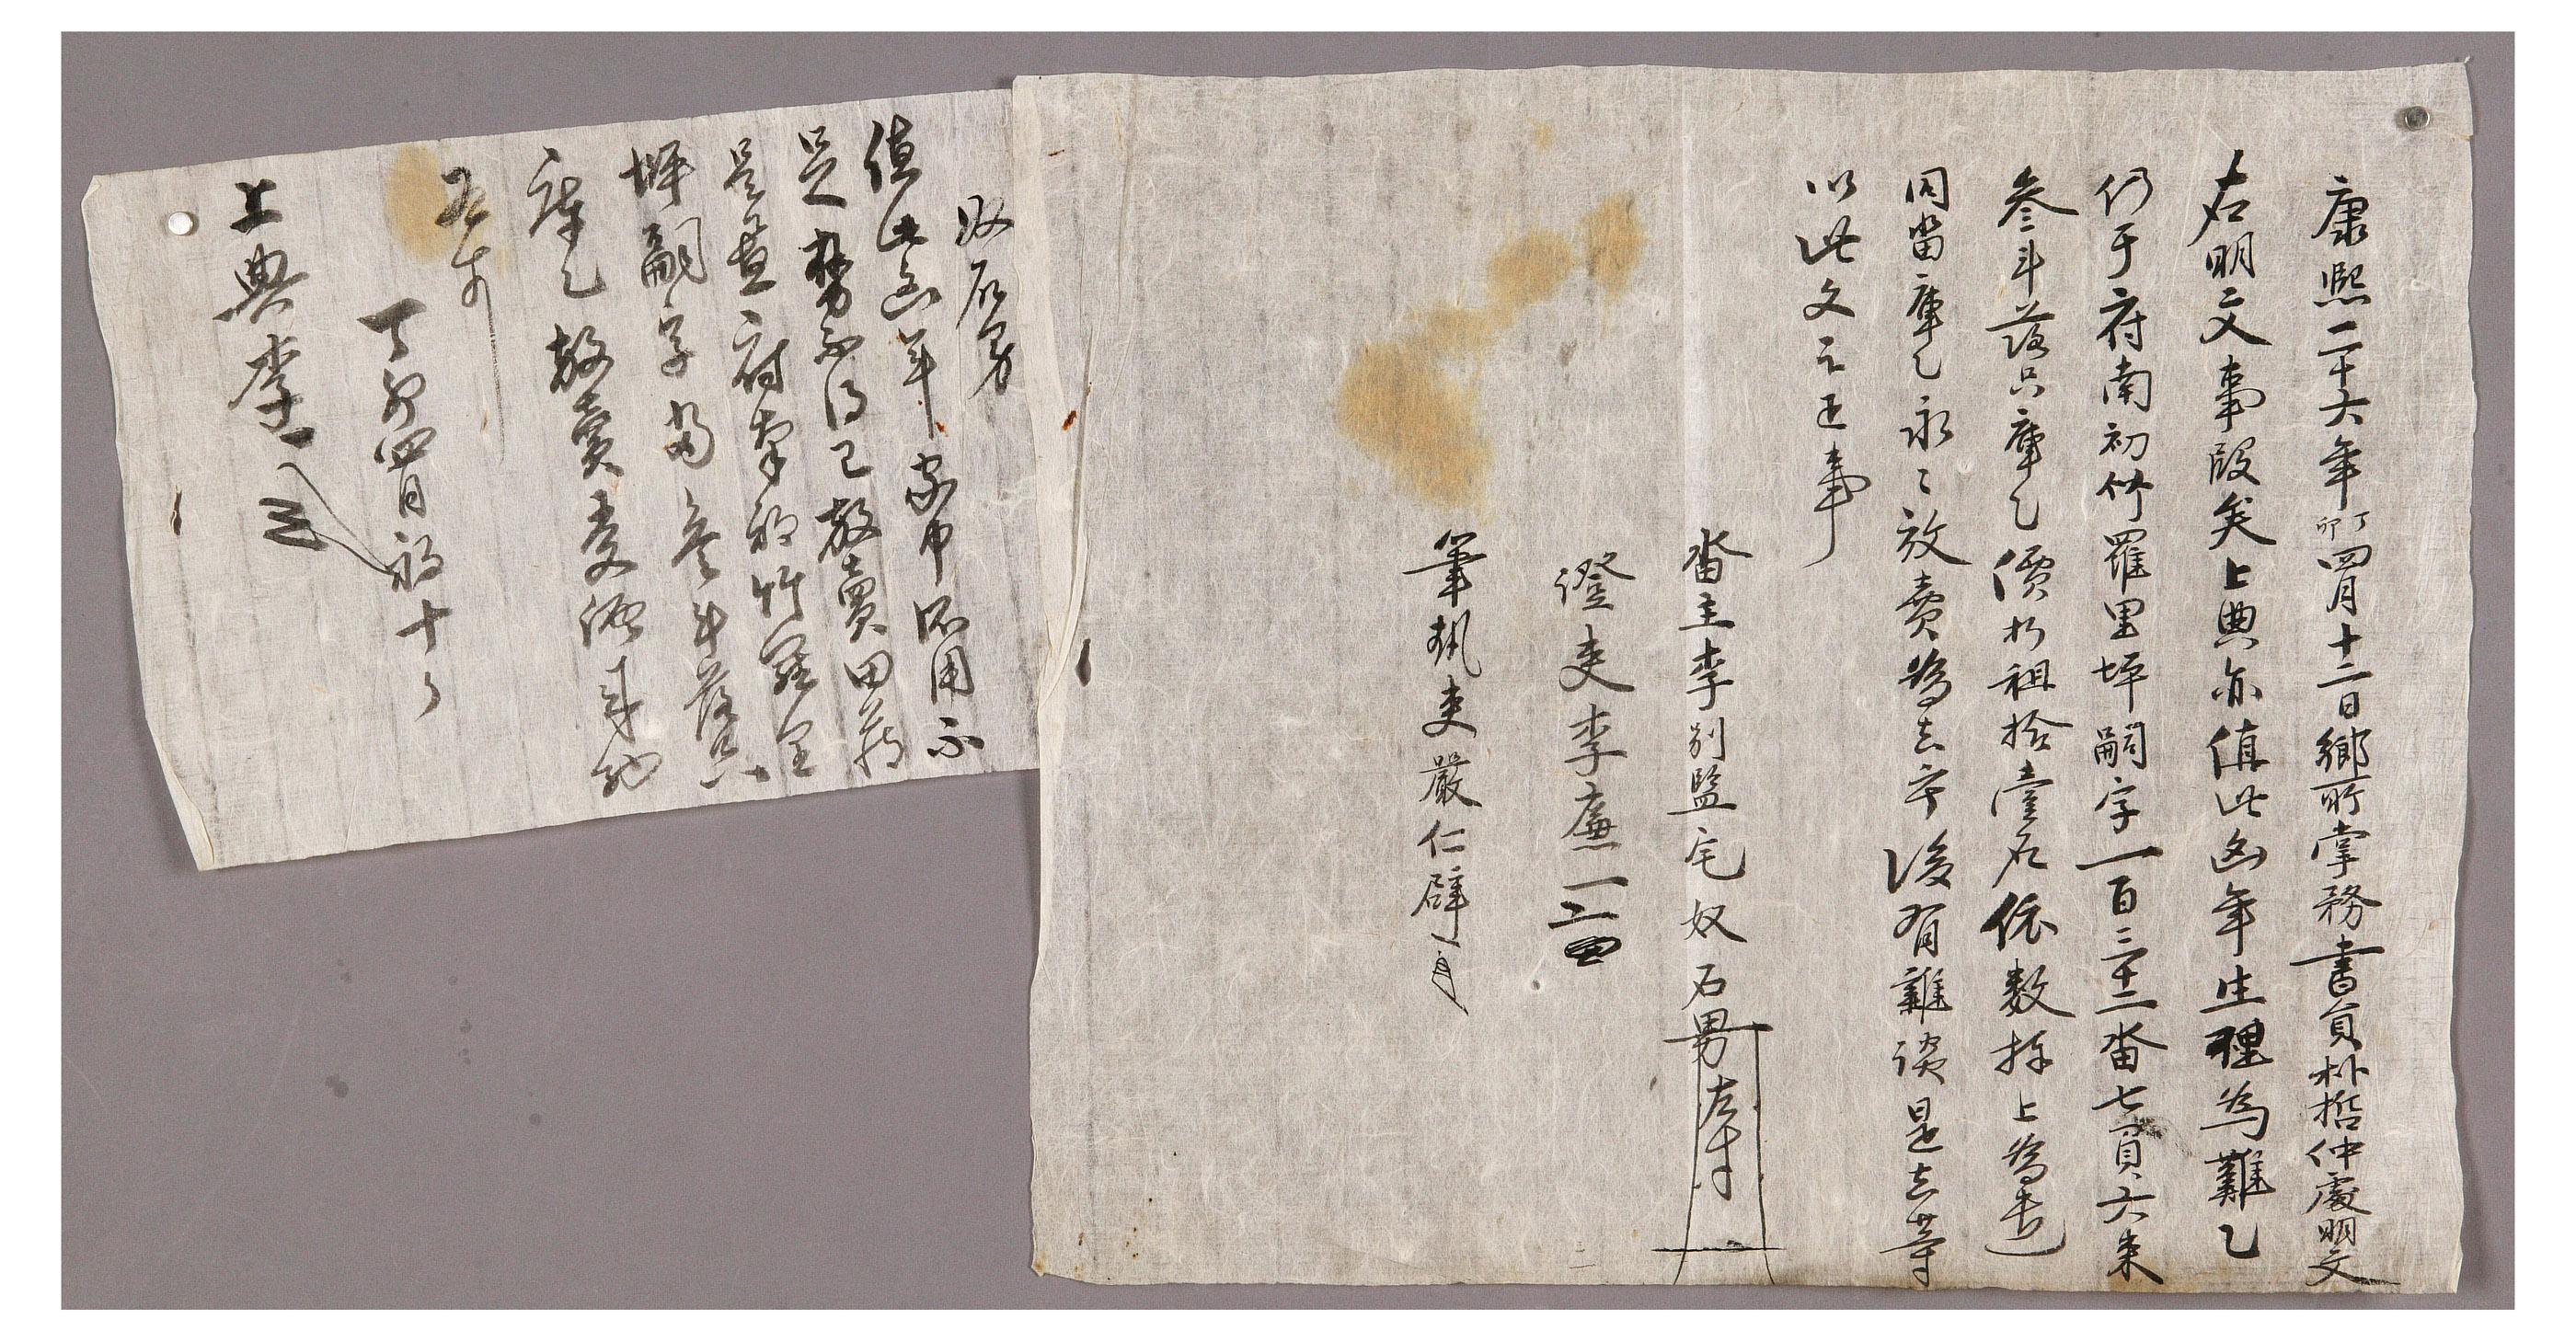 康熙二十六年丁卯四月十二日鄕所掌務書員朴哲仲處明文
右明文事段矣上典亦值此凶年生理爲難乙
仍于府南初竹羅里坪嗣字一百三十二畓七負六束
參斗落只庫乙價折租拾壹石依數捧上爲遣
同畓庫乙永〻放賣爲去乎後有雜談是去等
以此文記正事
畓主李別監宅奴石男左寸
證吏李廉一
筆執吏嚴仁辟
奴石男
値此凶年家中所用不
足勢不得已放賣田畓
是置府南初竹羅里
坪嗣字畓參斗落只
庫乙放賣受價來納
丁卯四月初十日
上典李